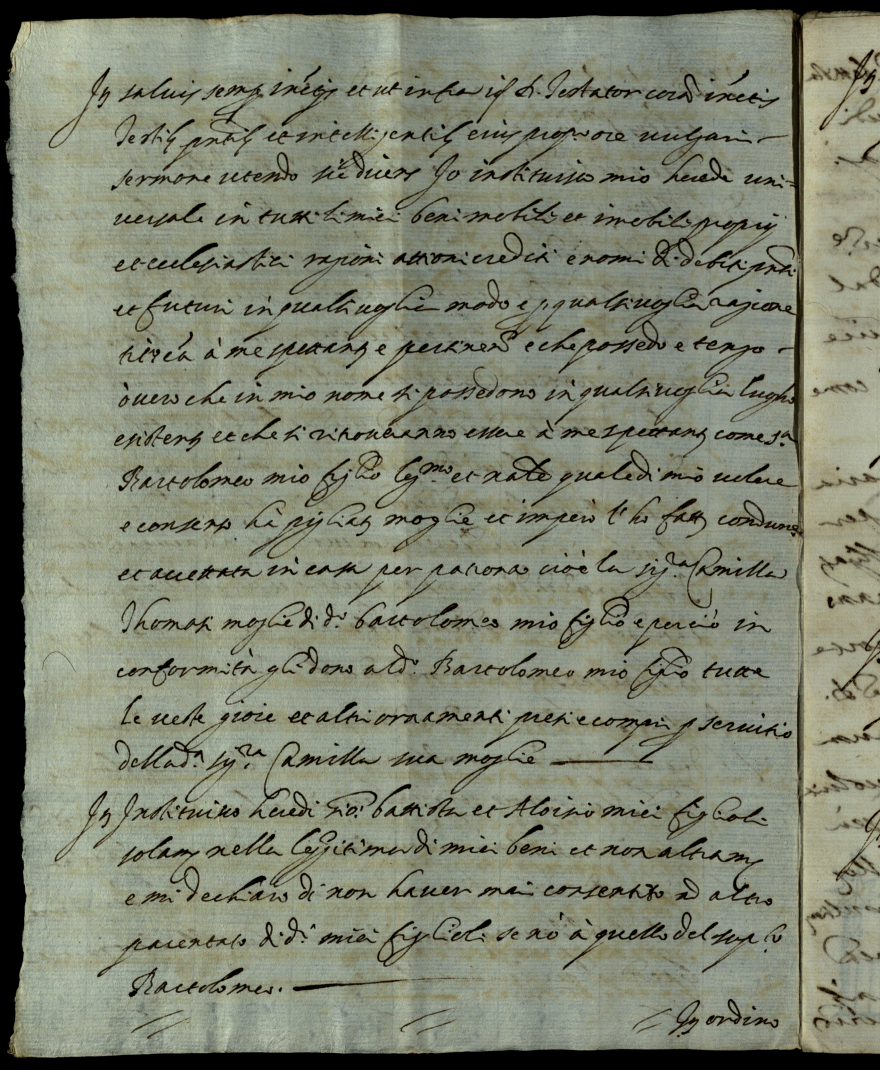 In salvis semp in oîbus et ut infra is d. Testator corã
Testib pñtib et intelligentib eius propr ore vulgari
sermone utendo sic dicens Io instituisco mio herede uni=
versale in tutti li miei beni mobili et imobili proprij
et eclesiastici ragioni attioni crediti e nomi di debiti pñti
et futuri in qualsivoglia modo e p qualsivoglia ragione
à me spettanti e pertinen e che possedo e tengo
òvero che in mio nome si possedono in qualsivoglia luogho
esistenti et che si ritroveranno essere à me spettanti come s.ª
Bartolomeo mio figlio leg.mo et nãle quale di mio volere
e consenso hà pigliato moglie et imperò l'ho fatto condure
et accettata in casa per patrona cioè la sig.ra Camilla
Thomasi moglie di d.º bartolomeo mio figlio e perciò in
conformità gli dono al d.º Bartolomeo mio figlio tutte
le veste gioie et altri ornamenti presi e compri p servitio
della d.ª sig.ra Camilla sua moglie
It Instituisco heredi Gio: battista et Aloisio miei figlioli
solam nella legitima di miei beni et non altram
e mi dechiaro di non haver mai consentito ad altro
parentato di d.i miei figlioli se nò à quello del sup.to
Bartolomeo.
It ordino